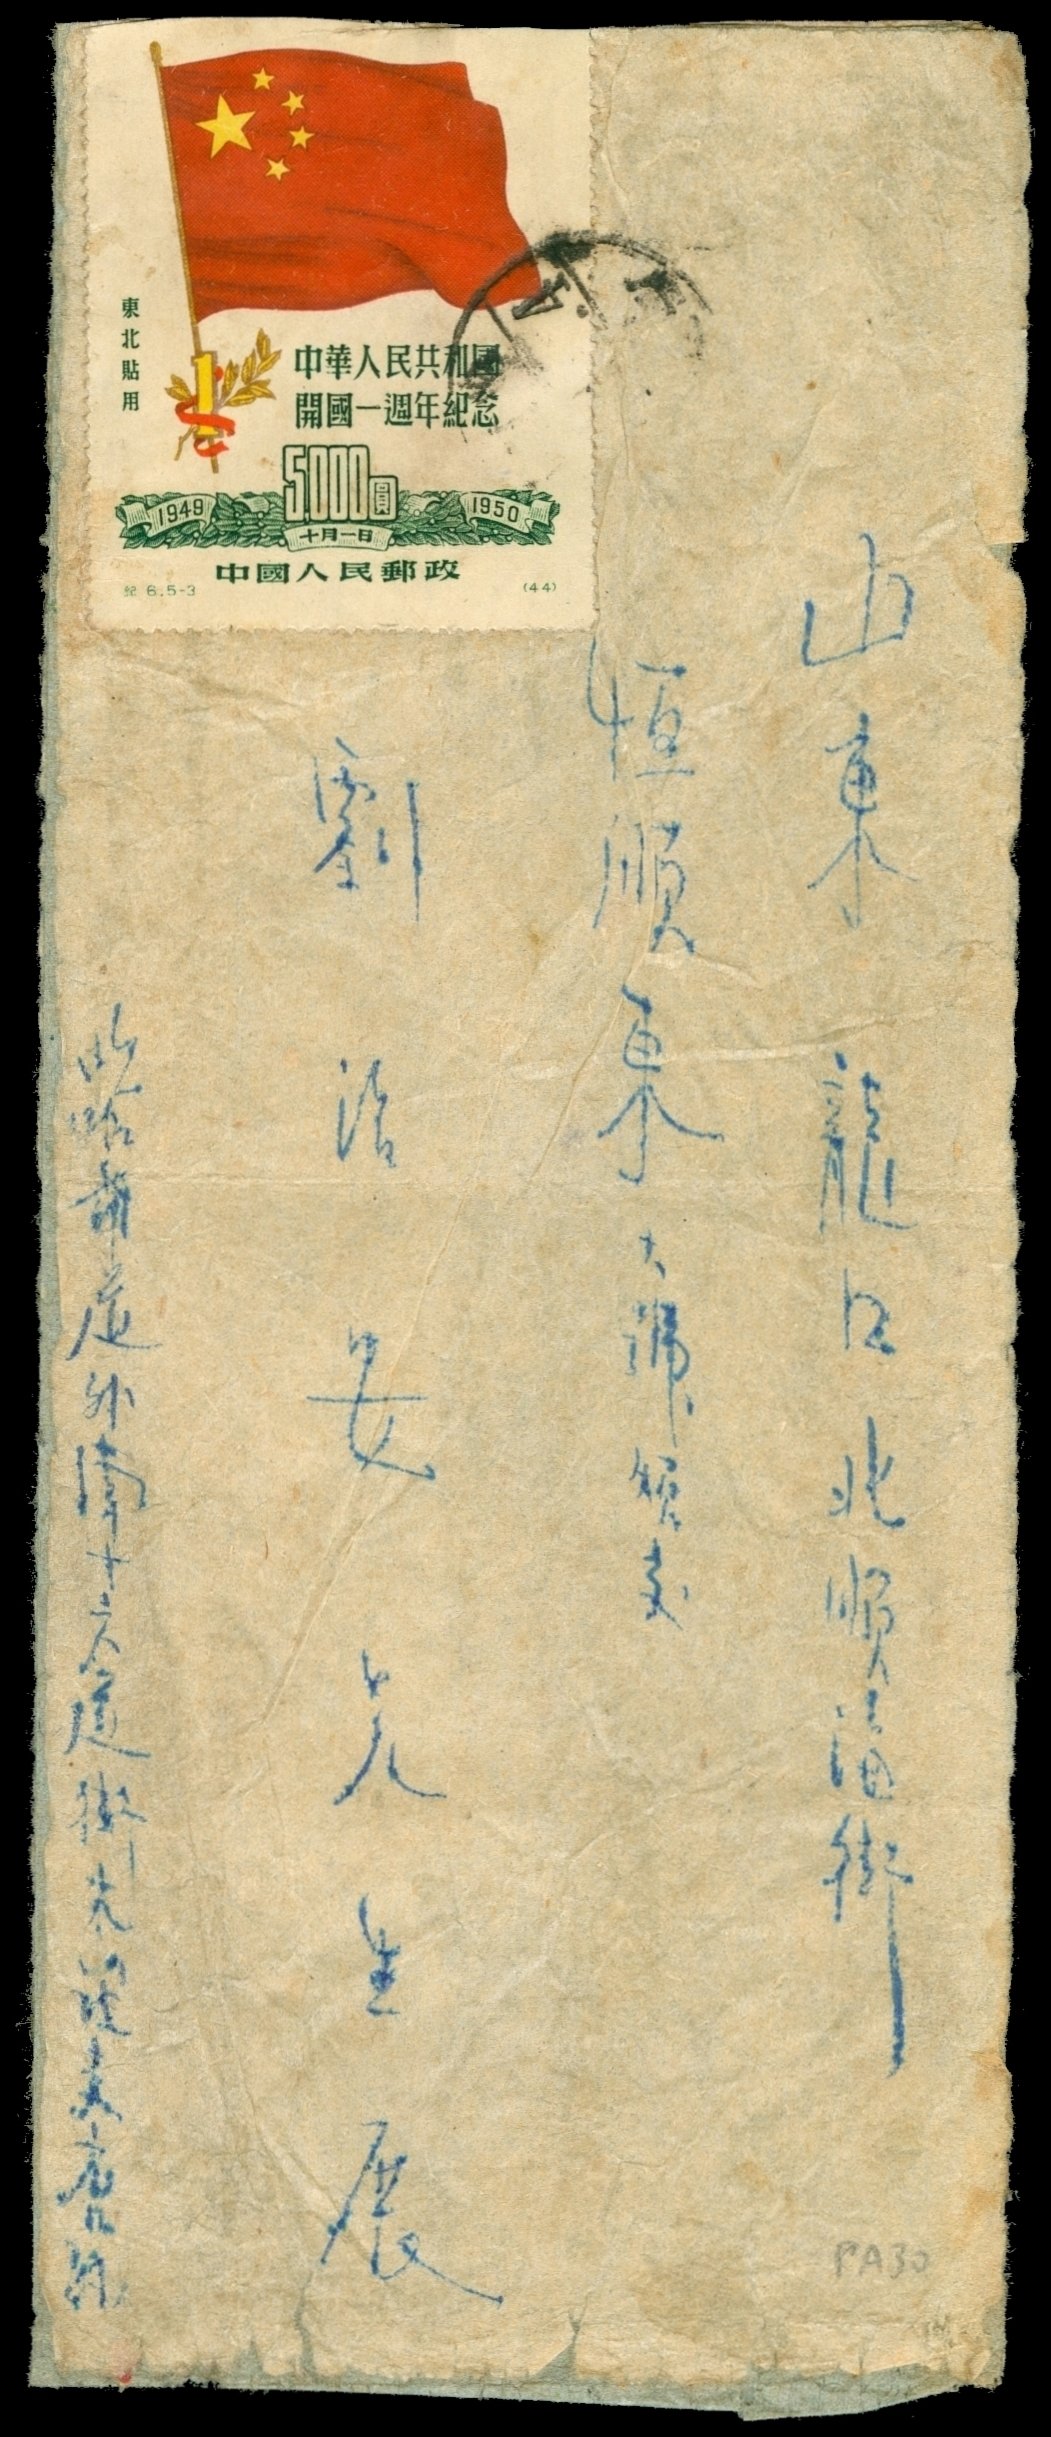 東北貼用
中華人民共和國
開國一週年紀念
5000圓
1949
1950
十月一日
中國人民郵政
紀 6.5-3
(44)
山東龍口北順海街
恒順東大號
劉治安先生展
哈道外南十六道街
PA30